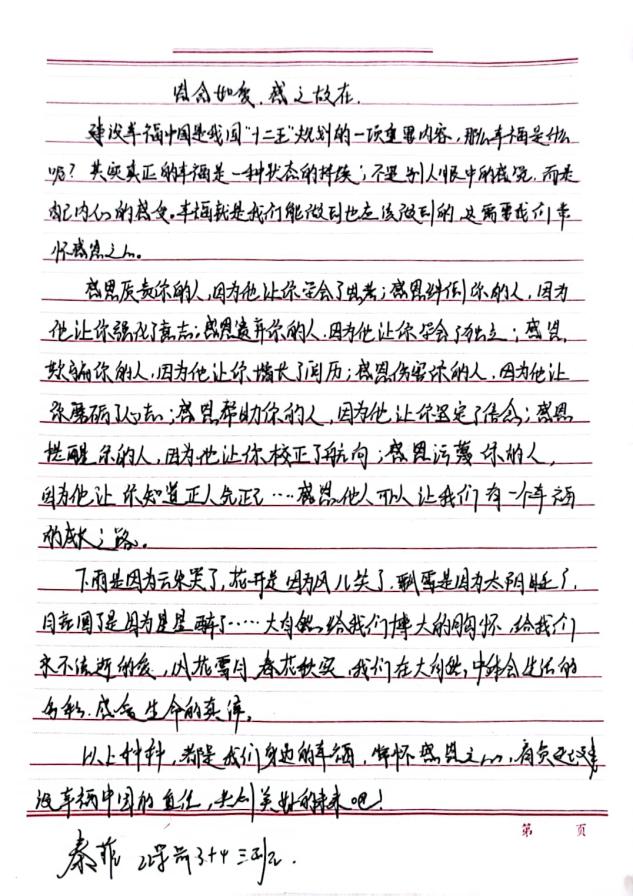 建设幸福中国是我国"十二五"规划的一项重要内容,那么幸福是什么
呢?其实真正的幸福是一种状态的持续;不是别人眼中的感觉,而是
自己内心的感受。幸福就是我们能做到也应该做到的,这需要我们常
怀感恩之心。
感恩斥责你的人,因为他让你学会了思考;感恩绊倒你的人,因为
他让你强化了意志;感恩遗弃你的人,因为他让你学会了独立;感恩
欺骗你的人,因为他让你增长了阅历;感恩伤害你的人,因为他让
你磨砺了心志;感恩帮助你的人,因为他让你坚定了信念;感恩
提醒你的人,因为他让你校正了航向;感恩污蔑你的人,
因为他让你知道正人先正己……感恩他人可以让我们有一个幸福
的成长之路。
下雨是因为云朵哭了,花开是因为风儿笑了,飘雪是因为太阳睡了,
月亮圆了是因为星星醉了……大自然给我们博大的胸怀,给我们
永不流逝的爱,风花雪月,春花秋实,我们在大自然中体会生活的
多彩,感受生命的真谛。
以上种种,都是我们身边的幸福,常怀感恩之心,肩负起建
设幸福中国的重任,共创美好的未来吧!
第 页
秦菲